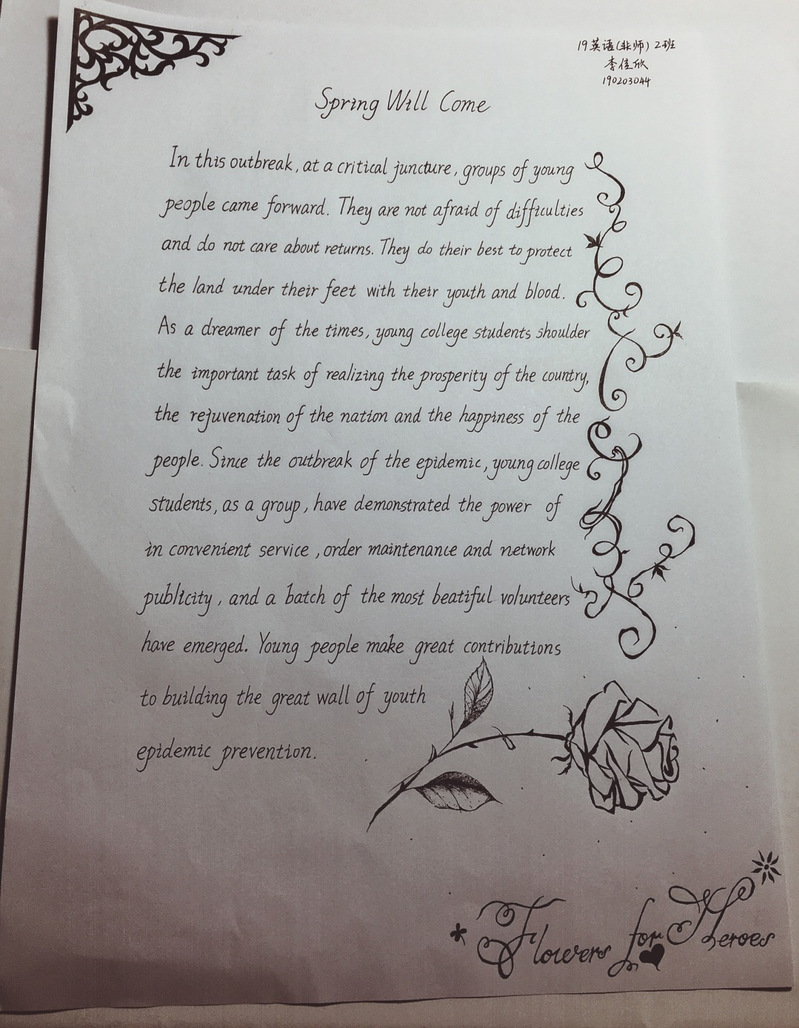 19英语(非师)2班
李佳欣
190203044
Spring Will Come
In this outbreak, at a critical juncture, groups of young
people came forward. They are not afraid of difficulties
and do not care about returns. They do their best to protect
the land under their feet with their youth and blood.
As a dreamer of the times, young college students shoulder
the important task of realizing the prosperity of the country,
the rejuvenation of the nation and the happiness of the
people. Since the outbreak of the epidemic, young college
students, as a group, have demonstrated the power of
in convenient service, order maintenance and network
publicity, and a batch of the most beatiful volunteers
have emerged. Young people make great contributions
to building the great wall of youth
epidemic prevention.
Flowers for Heroes